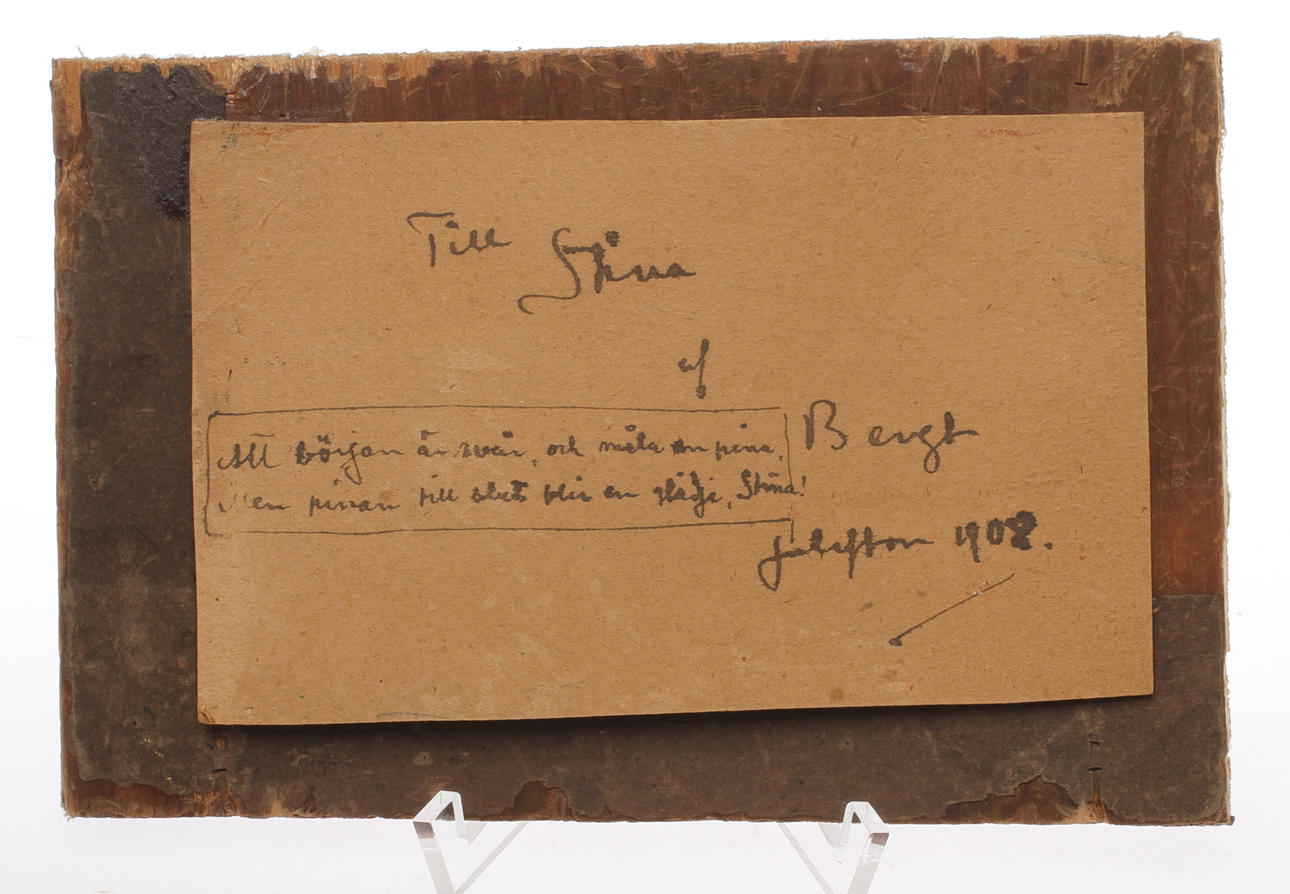 Till
Stina
af
Bengt
Att början är svår, och måla en pina,
Men pinan till slut blir en glädje, Stina!
Julafton 1908.